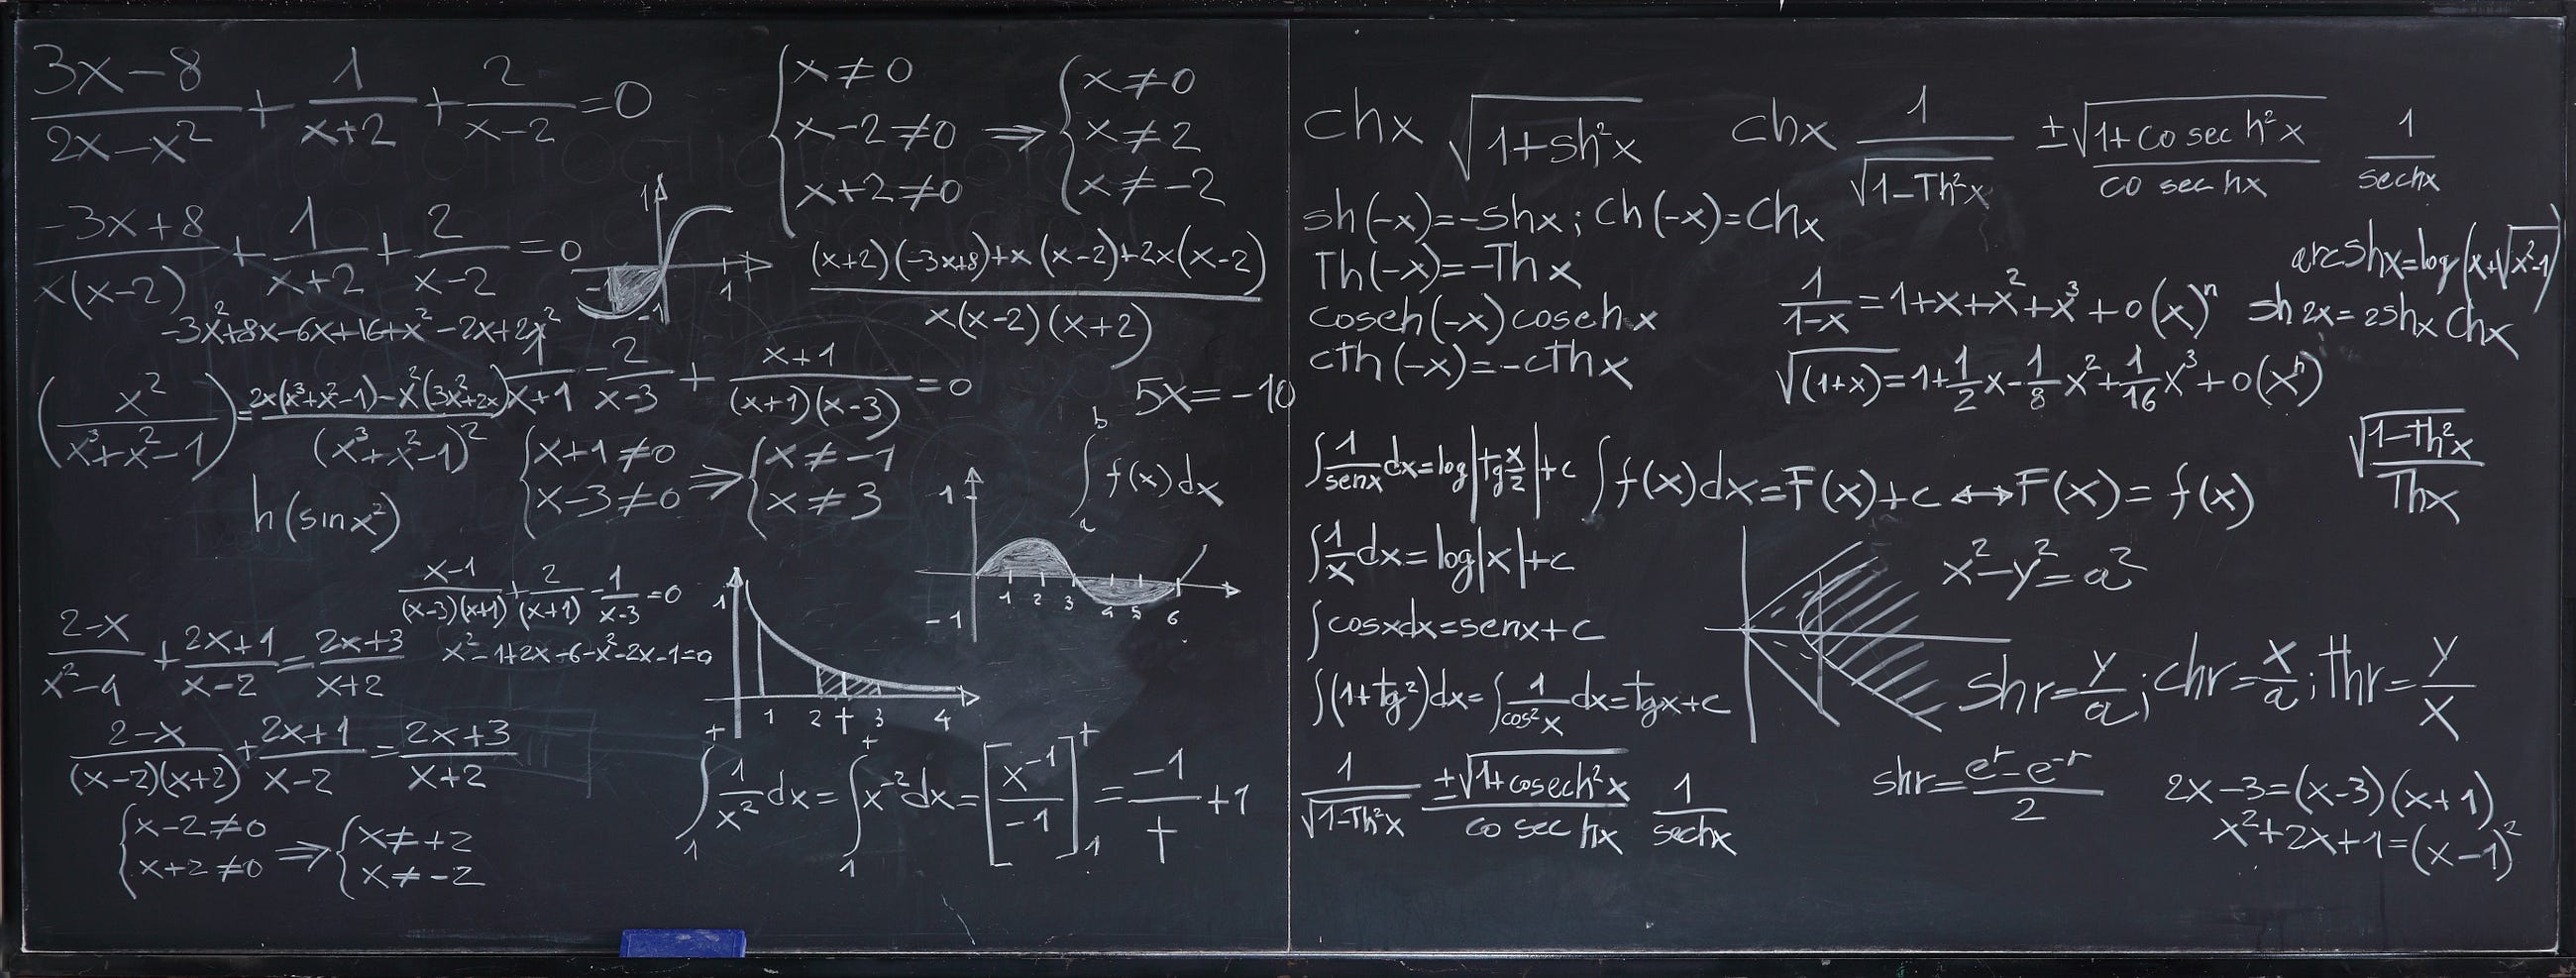 3x-8/2x-x² + 1/x+2 + 2/x-2 = 0
{x≠0 x-2≠0 x+2≠0 ⇒ {x≠0 x≠2 x≠-2
-3x+8/x(x-2) + 1/x+2 + 2/x-2 = 0
1 -1 1 -1
(x+2)(-3x+8)+x(x-2)+2x(x-2)/x(x-2)(x+2)
-3x²+8x-6x+16+x²-2x+2x²
(x²/x³+x²-1) = 2x(x³+x²-1)-x²(3x²+2x)/(x³+x²-1)²
1/x+1 - 2/x-3 + x+1/(x+1)(x-3) = 0
5x=-10
{x+1≠0 x-3≠0 ⇒ {x≠-1 x≠3
∫ₐᵇ f(x)dx
h(sinx²)
1 -1 1 2 3 4 5 6
x-1/(x-3)(x+1) + 2/(x+1) - 1/x-3 = 0
x²-1+2x-6-x²-2x-1=0
2-x/x²-4 + 2x+1/x-2 = 2x+3/x+2
1 1 2 t 3 4
2-x/(x-2)(x+2) + 2x+1/x-2 = 2x+3/x+2
{x-2≠0 x+2≠0 ⇒ {x≠+2 x≠-2
∫₁ᵗ 1/x² dx = ∫₁ᵗ x⁻² dx = [x⁻¹/-1]₁ᵗ = -1/t +1
chx √1+sh²x
chx 1/√1-Th²x ±√1+cosech²x/cosechx 1/sechx
sh(-x)=-shx; ch(-x)=chx
Th(-x)=-Thx
cosech(-x)cosechx
cth(-x)=-cthx
arcshx=log(x+√x²-1)
1/1-x = 1+x+x²+x³+o(x)ⁿ
sh2x=2shx chx
√(1+x) = 1+1/2x-1/8x²+1/16x³+o(xⁿ)
√1-Th²x/Thx
∫1/senx dx=log|tg x/2|+c
∫f(x)dx=F(x)+c ↔ F(x)=f(x)
∫1/x dx=log|x|+c
∫cosxdx=senx+c
∫(1+tg²)dx=∫1/cos²x dx=tgx+c
x²-y²=a²
shr=y/a; chr=x/a; thr=y/x
1/√1-Th²x ±√1+cosech²x/cosechx 1/sechx
shr=eʳ-e⁻ʳ/2
2x-3=(x-3)(x+1)
x²+2x+1=(x-1)²